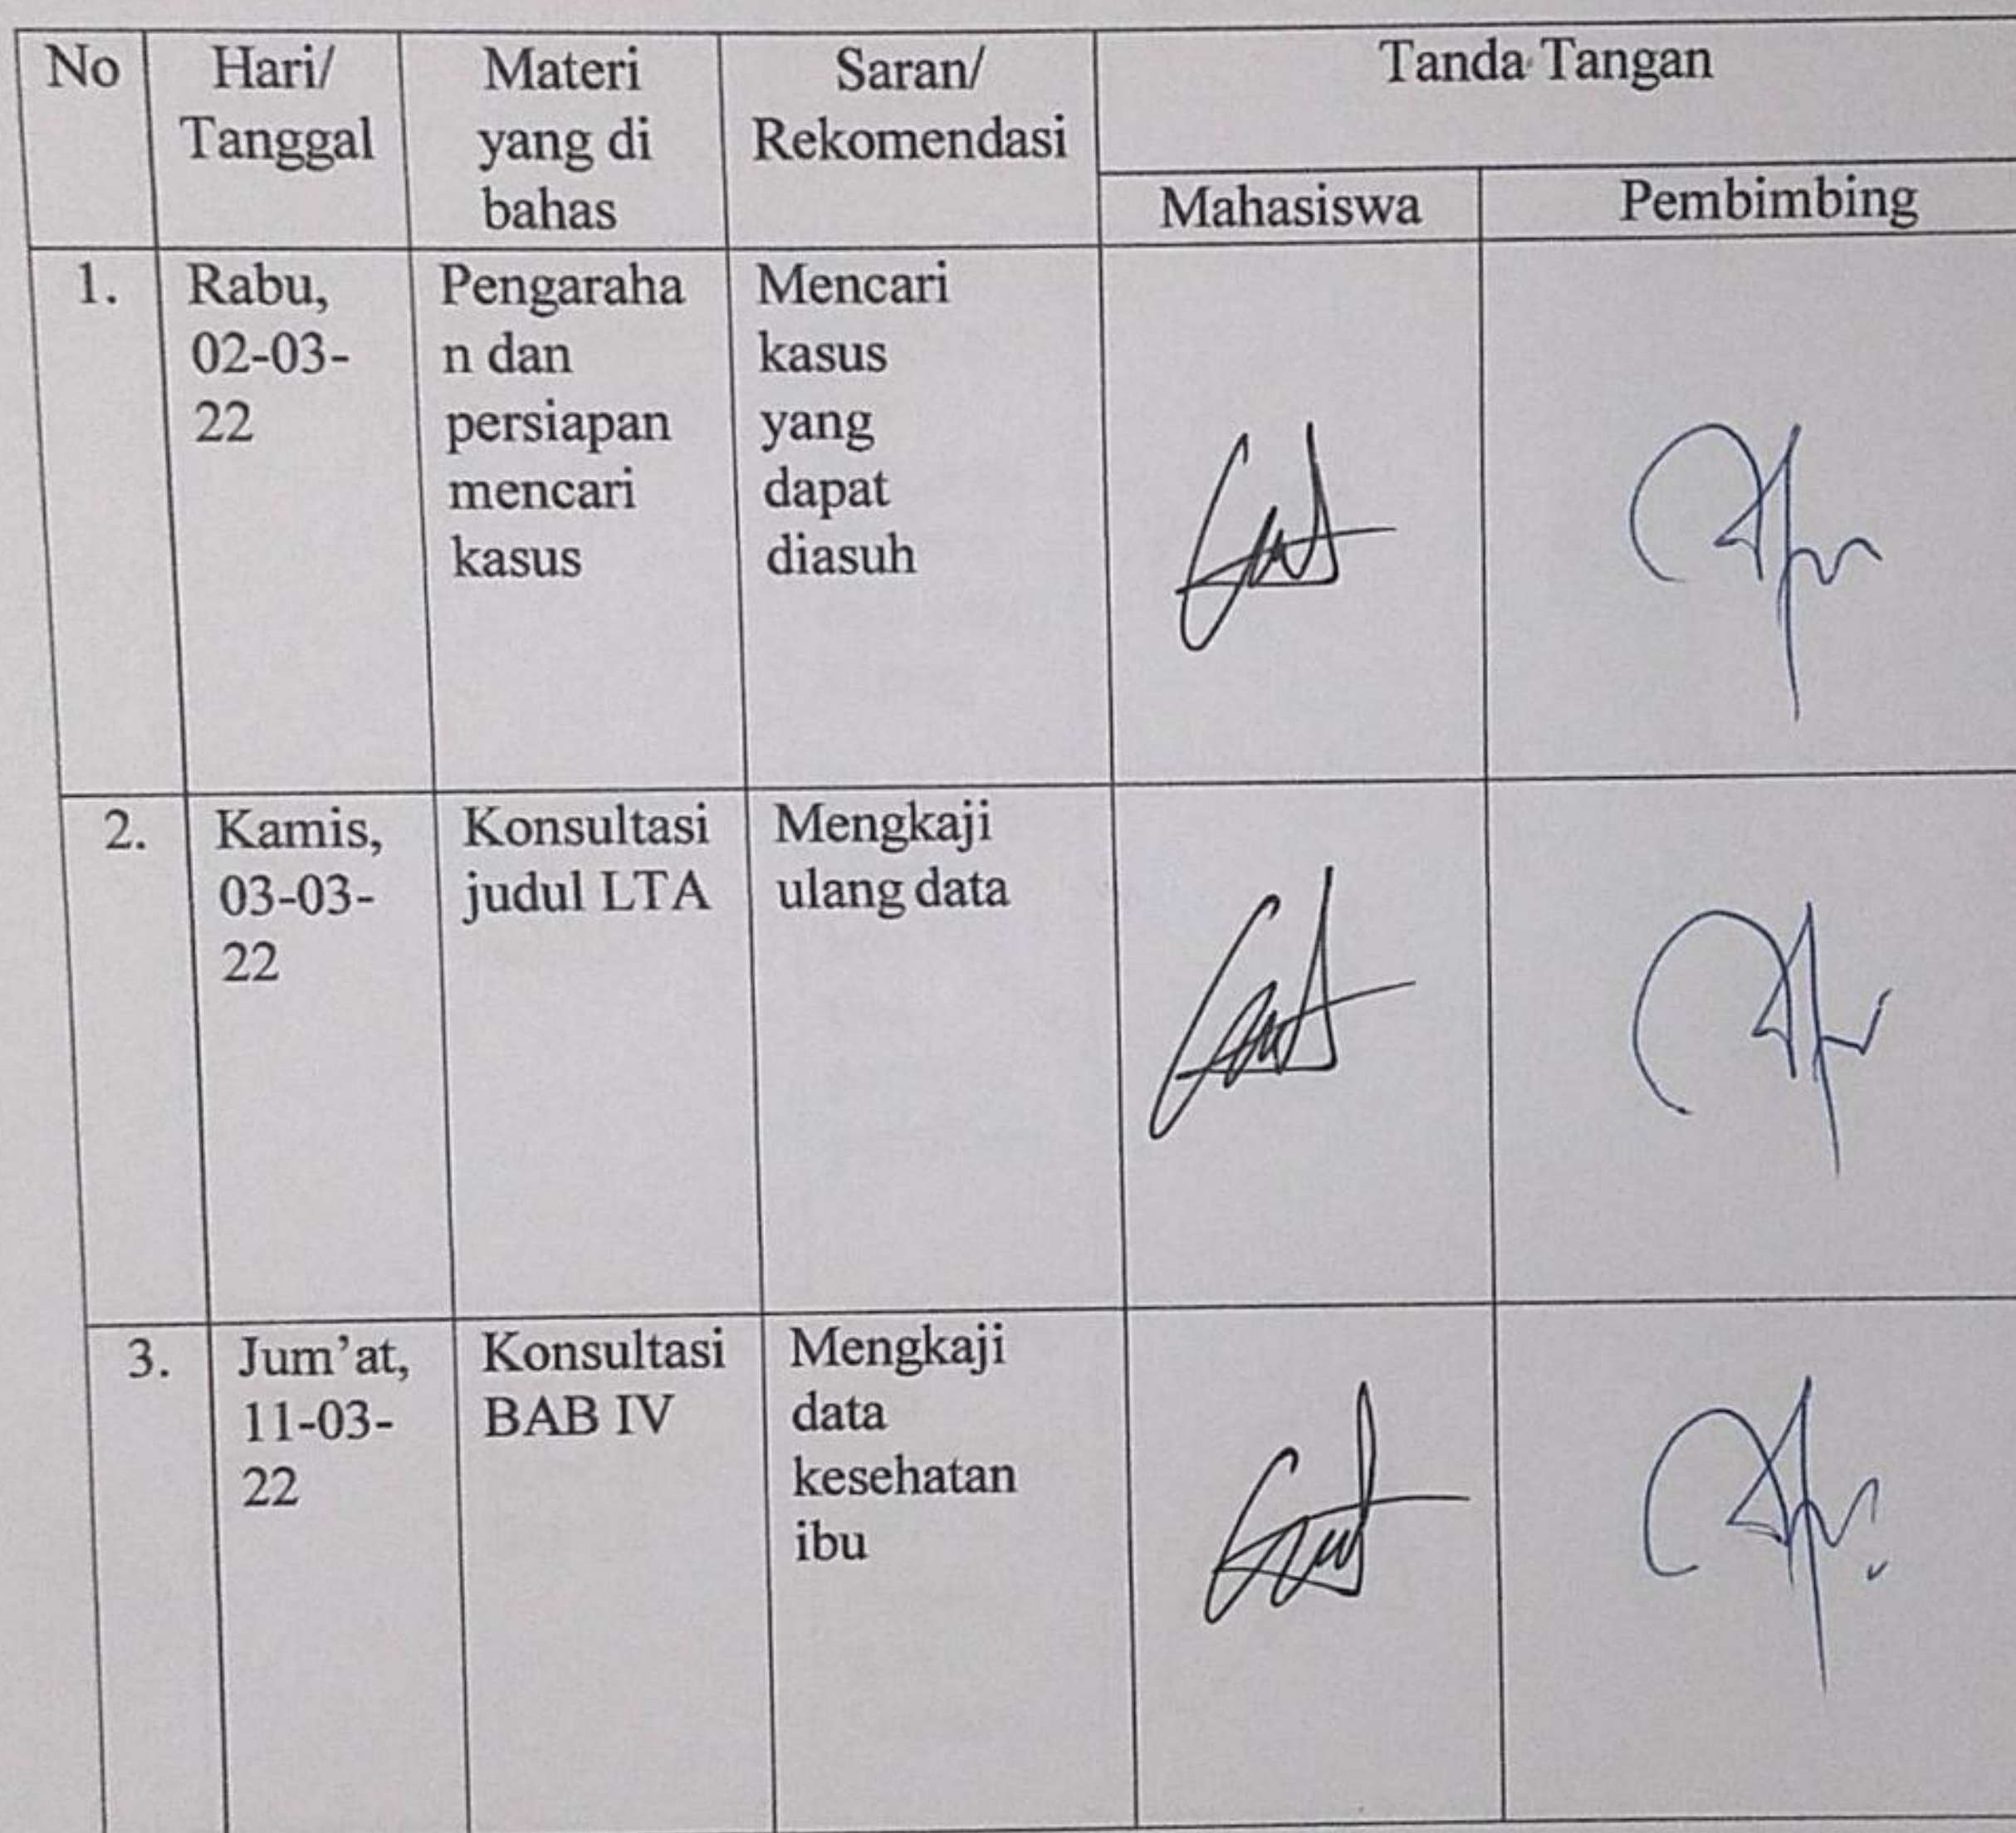 No
Hari/
Tanggal
Materi
yang di
bahas
Saran/
Rekomendasi
Tanda Tangan
Mahasiswa
Pembimbing
1.
Rabu,
02-03-
22
Pengaraha
n dan
persiapan
mencari
kasus
Mencari
kasus
yang
dapat
diasuh
2.
Kamis,
03-03-
22
Konsultasi
judul LTA
Mengkaji
ulang data
3.
Jum’at,
11-03-
22
Konsultasi
BAB IV
Mengkaji
data
kesehatan
ibu